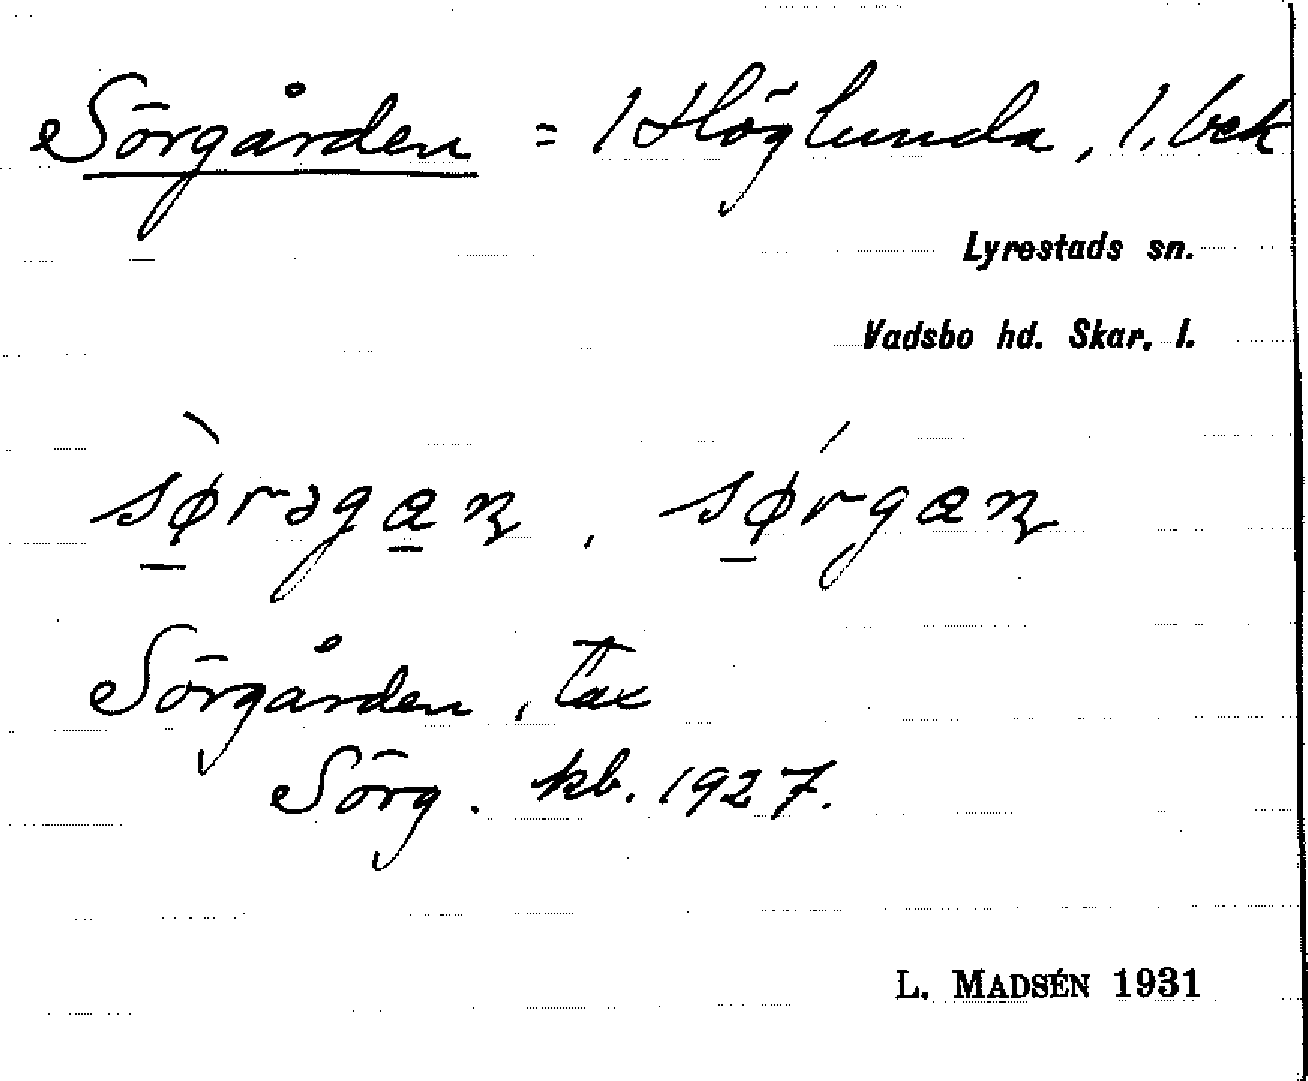 Sörgården = 1 Höglunda, 1. bek
Lyrestads sn.
Vadsbo hd. Skar. l.
sø̱rəga̱n, sø̱rgan
Sörgården, tax
Sörg. kb. 1927.
L. MADSÉN 1931